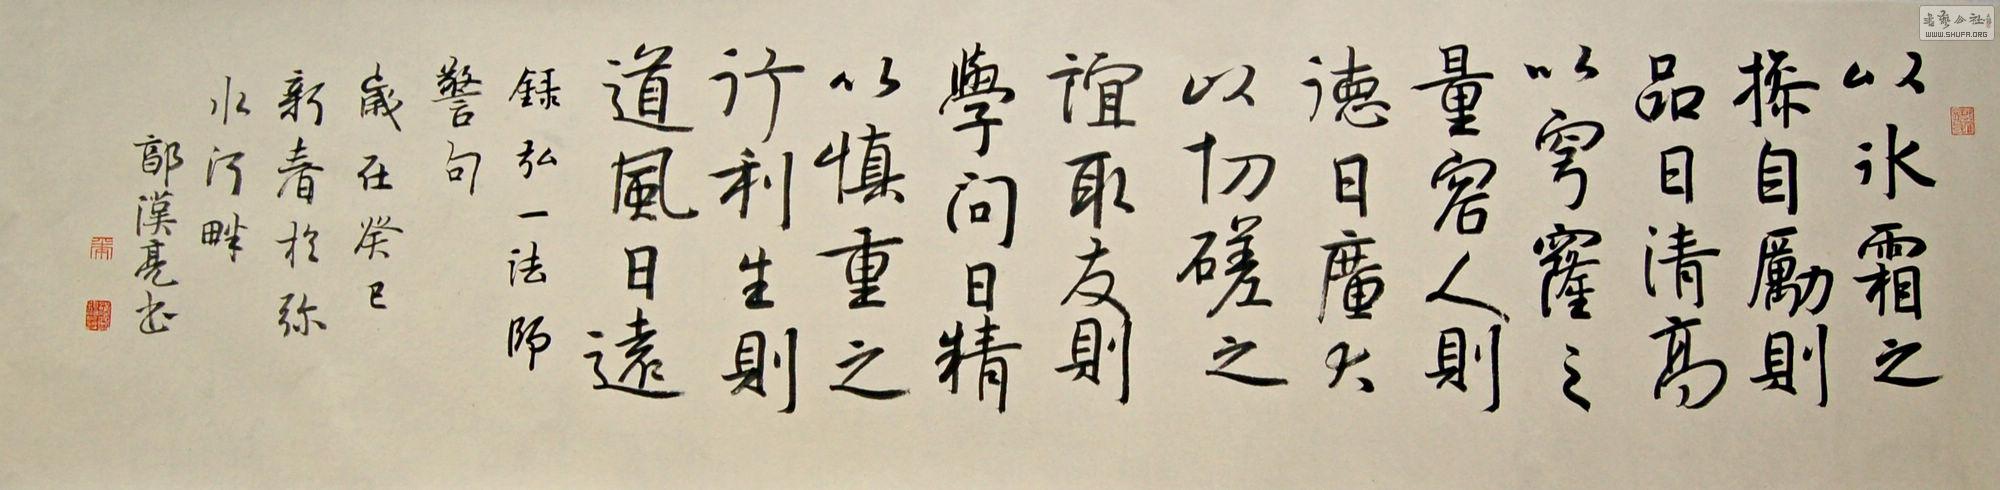 以氷霜之
操自勵則
品日清高
以穹窿之
量容人則
德日廣大
以切磋之
誼取友則
學問日精
以慎重之
行利生則
道風日遠
録弘一法師
警句
歲在癸巳
新春於弥
水河畔
郭漢亮书
WWW.SHUFA.ORG